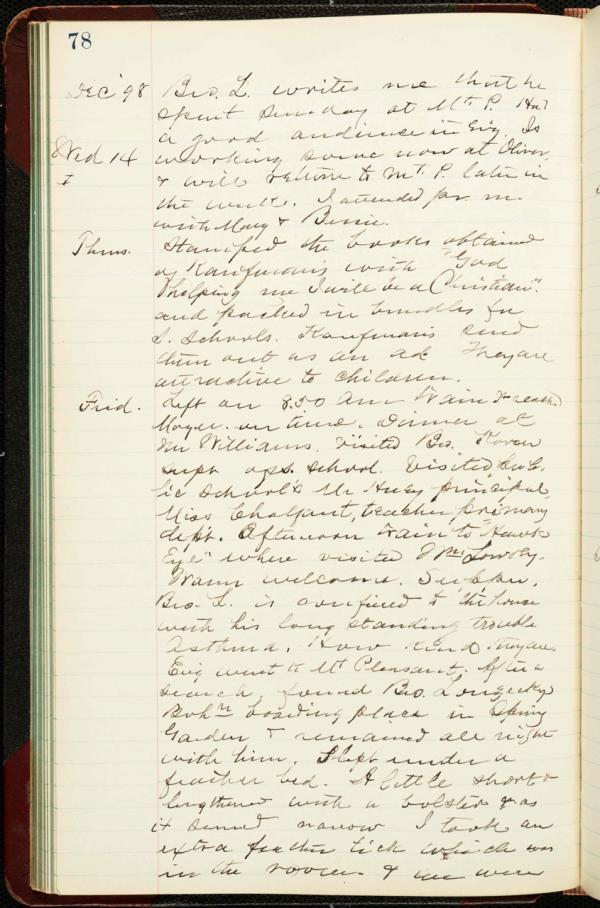 78
Dec '98 Bro. L. writes me that he
spent Sunday at Mt. P. Had
a good audience in Evg. Is
Wed 14 working some now at Oliver,
& will return to Mt. P. later in
the week. I attended pr. m.
with Mary & Bessie.
Thurs. Stamped the books obtained
of Kaufman's with "God
helping me I will be a Christian".
and packed in bundles for
S. Schools. Kaufmans send
them out as an ad. They are
attractive to children.
Frid. Left on 8.50 am train & reached
Moyer on time. Dinner at
Mr Williams. Visited Bro.
Supt of S. School. Visited Pub-
lic School & Mr Huey principal,
Miss Chalfant, teacher primary
dept. Afternoon train to "Hawk
Eye" where visited Wm Lowry.
Warm welcome. Supper.
Bro. L. is confined to the house
with his long standing trouble
Asthma. How kind they are.
Evg went to Mt Pleasant. After a
search, found Bro. Longecky's
boarding place in Spring
Garden & remained all night
with him. Slept under a
feather bed. A little short &
lengthened with a bolster & as
it seemed narrow I took an
extra feather tick which was
in the room & we were